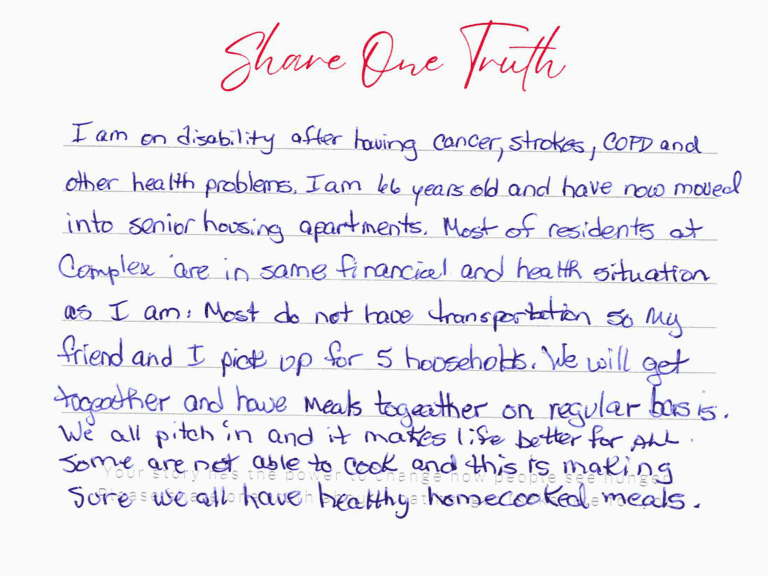 Share One Truth
I am on disability after having cancer, strokes, COPD and
other health problems. I am 66 years old and have now moved
into senior housing apartments. Most of residents at
Complex are in same financial and health situation
as I am. Most do not have transportation so my
friend and I pick up for 5 households. We will get
togeather and have meals togeather on regular basis.
We all pitch in and it makes life better for ALL.
Some are not able to cook and this is making
Your story has the power to change how people see hunger
Sure we all have healthy homecooked meals.